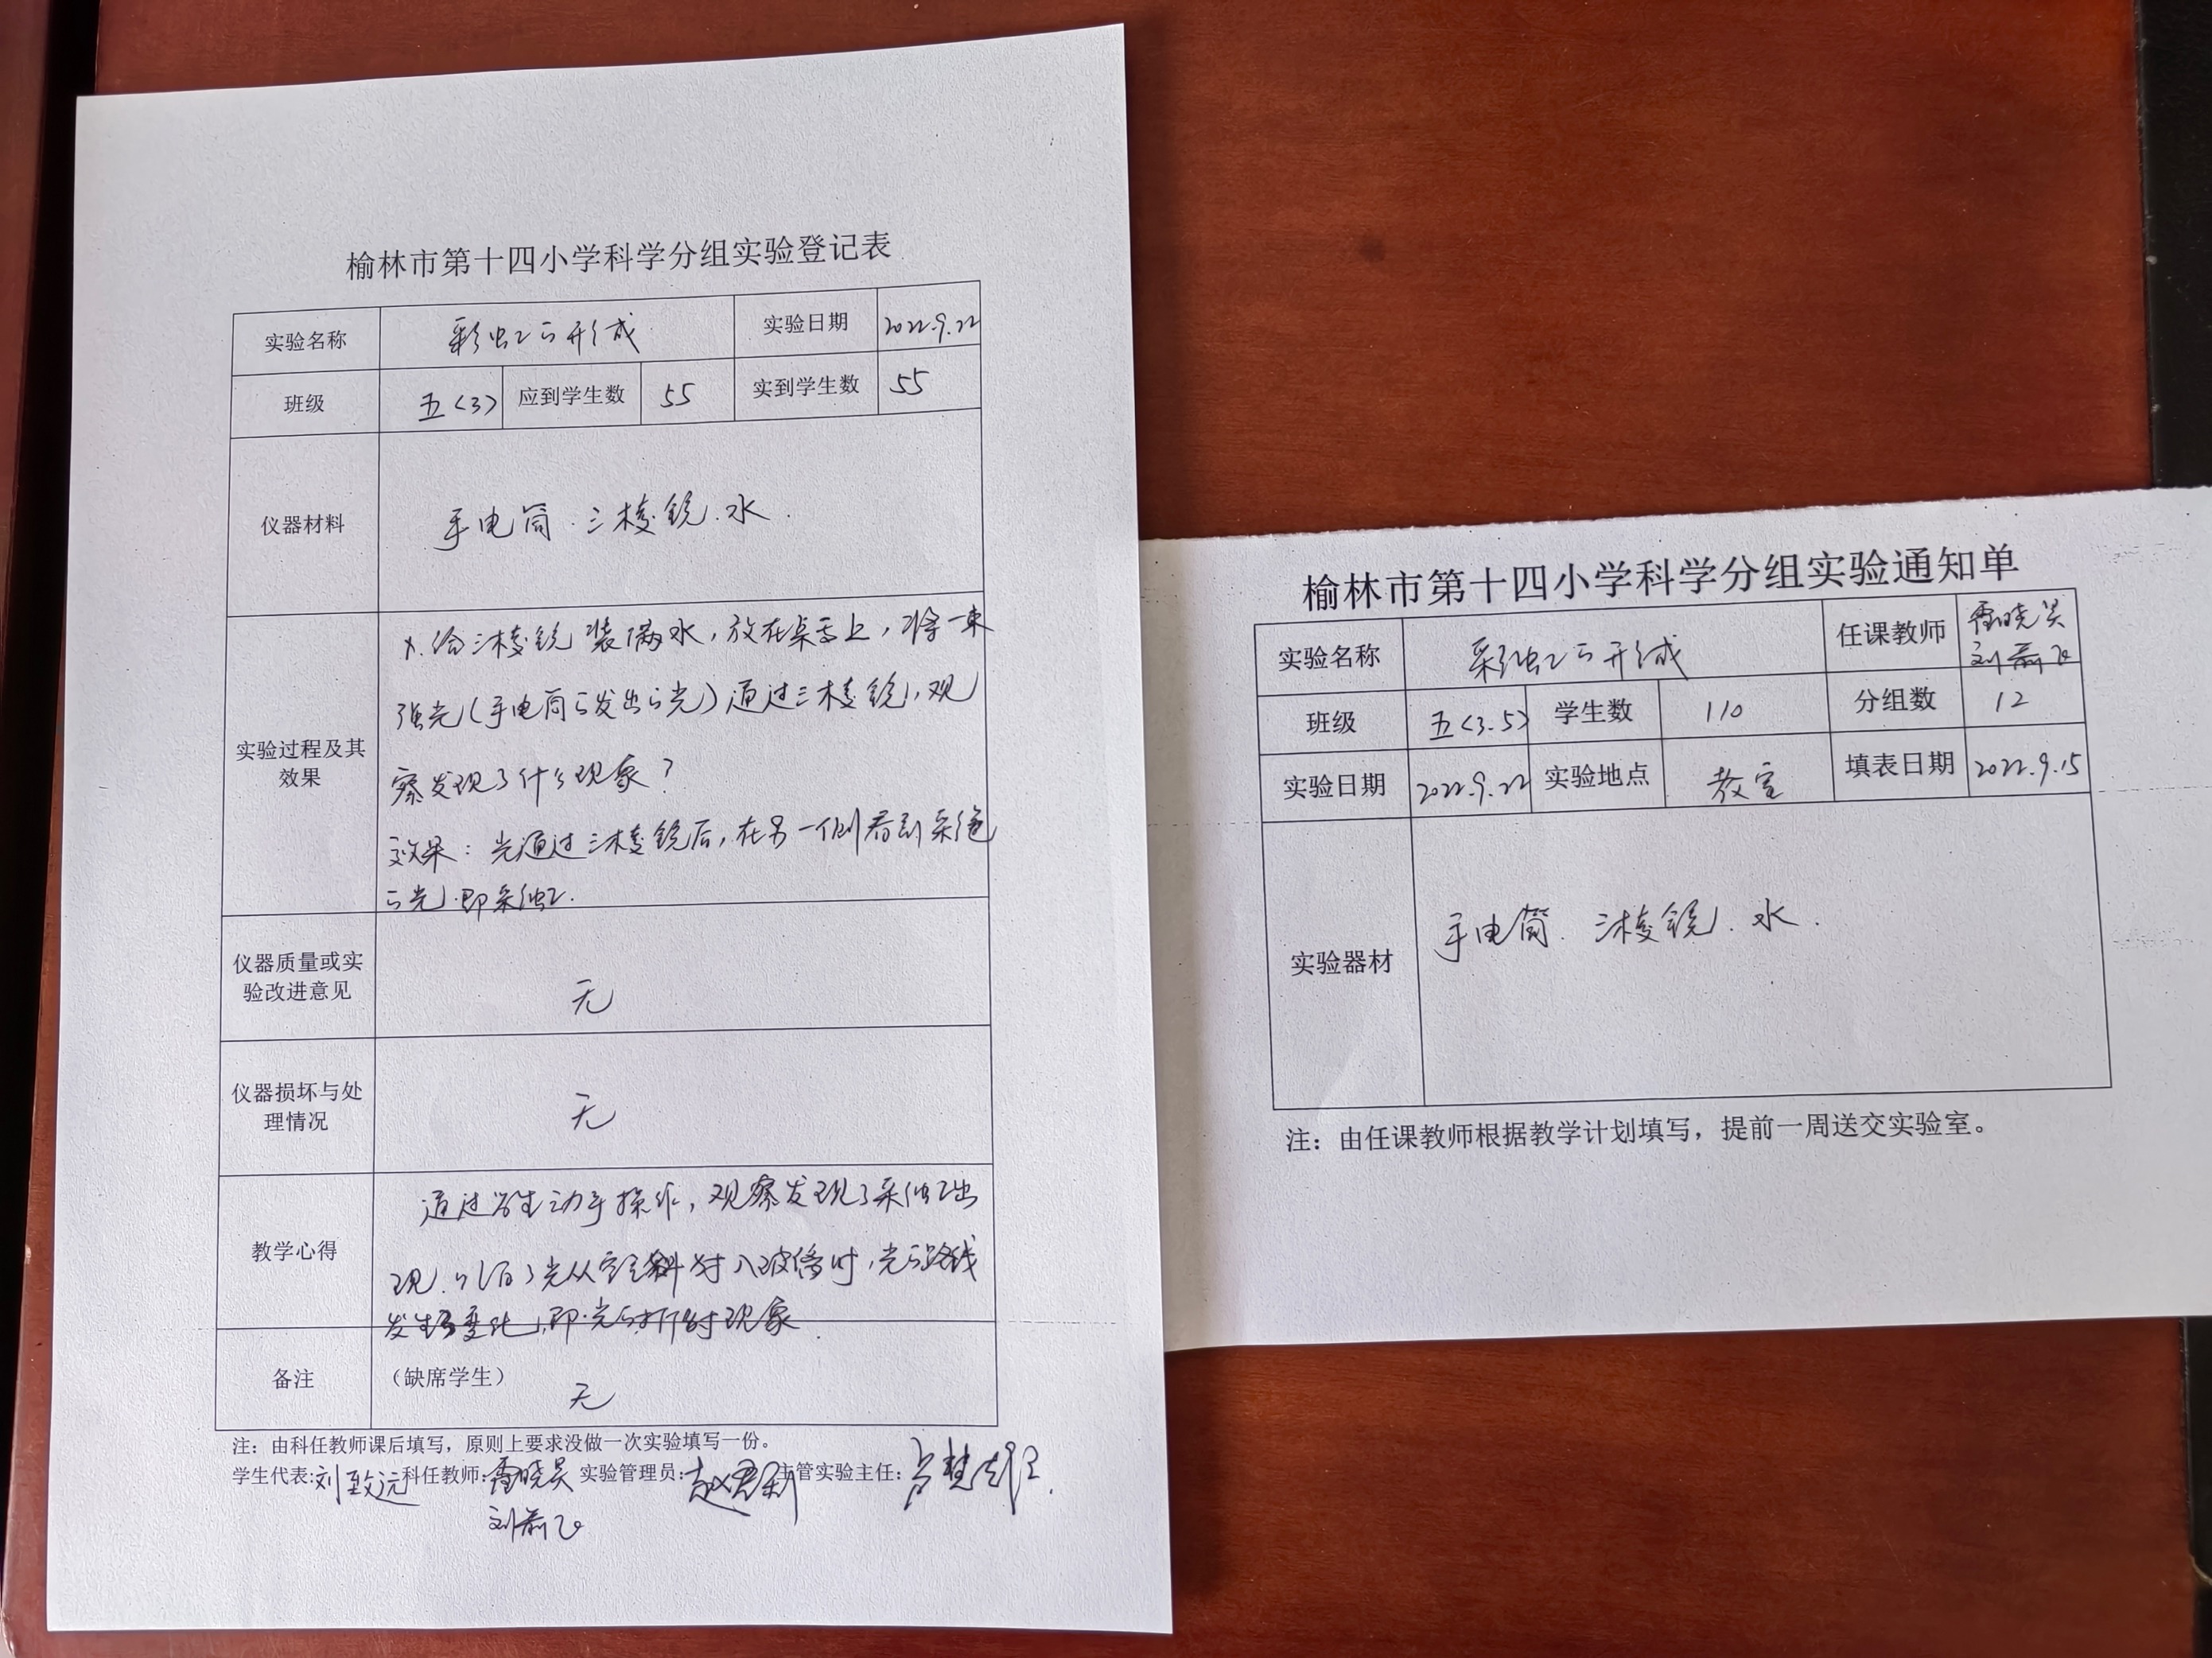 榆林市第十四小学科学分组实验登记表
实验名称 彩虹的形成 实验日期 2022.9.22
班级 五(3) 应到学生数 55 实到学生数 55
仪器材料 手电筒.三棱镜.水.
给三棱镜装满水,放在桌面上,将一束
强光(手电筒的发出的光)通过三棱镜,观
实验过程及其
效果
察发现了什么现象?
效果:光通过三棱镜后,在另一侧看到彩色
的光.即彩虹.
仪器质量或实
验改进意见
无
仪器损坏与处
理情况
无
通过学生动手操作,观察发现了彩虹出
教学心得
现.明白了光从空气斜射入玻璃时,光的路线
发生了变化,即光的折射现象.
备注 (缺席学生) 无
注：由科任教师课后填写，原则上要求没做一次实验填写一份。
学生代表:刘致远 科任教师:雷晓昊 实验管理员: 主管实验主任:
榆林市第十四小学科学分组实验通知单
实验名称 彩虹的形成 任课教师 雷晓昊
班级 五(3.5) 学生数 110 分组数 12
实验日期 2022.9.22 实验地点 教室 填表日期 2022.9.15
实验器材 手电筒.三棱镜.水.
注：由任课教师根据教学计划填写，提前一周送交实验室。